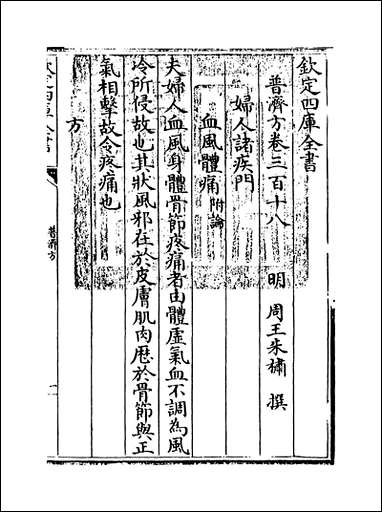 欽定四庫全書
普濟方卷三百十八
明 周王朱橚 撰
婦人諸疾門
血風體痛附論
夫婦人血風身體骨節疼痛者由體虛氣血不調為風
冷所侵故也其狀風邪在於皮膚肌肉歴於骨節與正
氣相擊故令疼痛也
方
普濟方